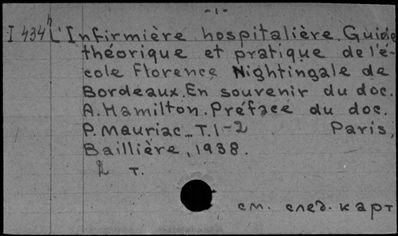 - 1 -
I 434 h L'Infirmière hospitalière. Guide
théorique et pratique de l'é-
cole Florence Nightingale de
Bordeaux. En souvenir du doc.
A. Hamilton. Préface du doc.
P. Mauriac. T. 1-2 Paris,
Baillière, 1938.
2 т.
см. след. карт